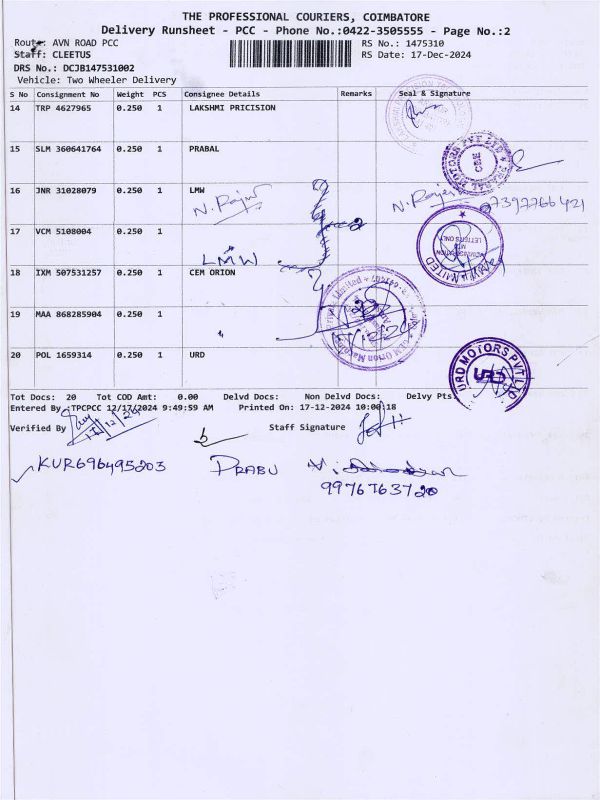 THE PROFESSIONAL COURIERS, COIMBATORE
Delivery Runsheet - PCC - Phone No.:0422-3505555 - Page No.:2
Route: AVN ROAD PCC RS No.: 1475310
Staff: CLEETUS RS Date: 17-Dec-2024
DRS No.: DCJB147531002
Vehicle: Two Wheeler Delivery
S No Consignment No Weight PCS Consignee Details Remarks Seal & Signature
14 TRP 4627965 0.250 1 LAKSHMI PRICISION
15 SLM 360641764 0.250 1 PRABAL
16 JNR 31028079 0.250 1 LMW
N. Rajesh N. Rajesh 07397766421
17 VCM 5108004 0.250 1
LMW
LETTERS ONLY
18 IXM 507531257 0.250 1 CEM ORION
19 MAA 868285904 0.250 1
20 POL 1659314 0.250 1 URD
URD MOTORS PVT LTD
URD
Tot Docs: 20 Tot COD Amt: 0.00 Delvd Docs: Non Delvd Docs: Delvy Pts
Entered By :TPCPCC 12/17/2024 9:49:59 AM Printed On: 17-12-2024 10:00:18
Verified By Staff Signature
17/12/24
KUR696495203 PRABU
9976763720